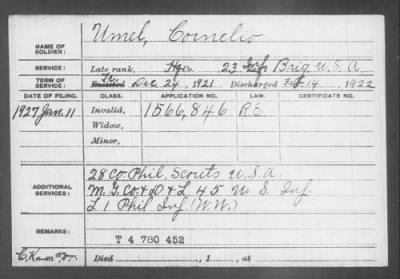 NAME OF SOLDIER: Umel, Cornelio
SERVICE: Late rank, Hq Co. 23 Inf. Brig U.S.A
TERM OF SERVICE: Enlisted Dec 24, 1921 Discharged Feb 14, 1922
DATE OF FILING. CLASS. APPLICATION NO. LAW. CERTIFICATE NO.
1927 Jan. 11 Invalid, 1566,846 R.E.
Widow,
Minor,
ADDITIONAL SERVICES: 28 Co. Phil, Scouts U.S.A.
M.G. Co. & D & L 45 U S Inf.
L 1 Phil Inf. (W.W.)
REMARKS:
T 4 780 452
Died, , 1 , at